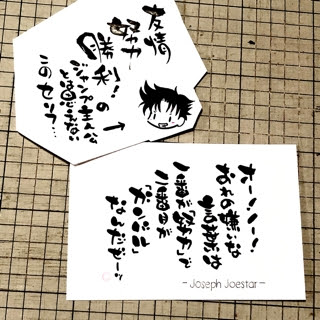 友情
努力
勝利!の
ジャンプ主人公
とは思えない
このセリフ…
オー!ノー!
おれの嫌いな
言葉は
一番が「努力」で
二番目が
「ガンバル」
なんだぜーッ
- Joseph Joestar -